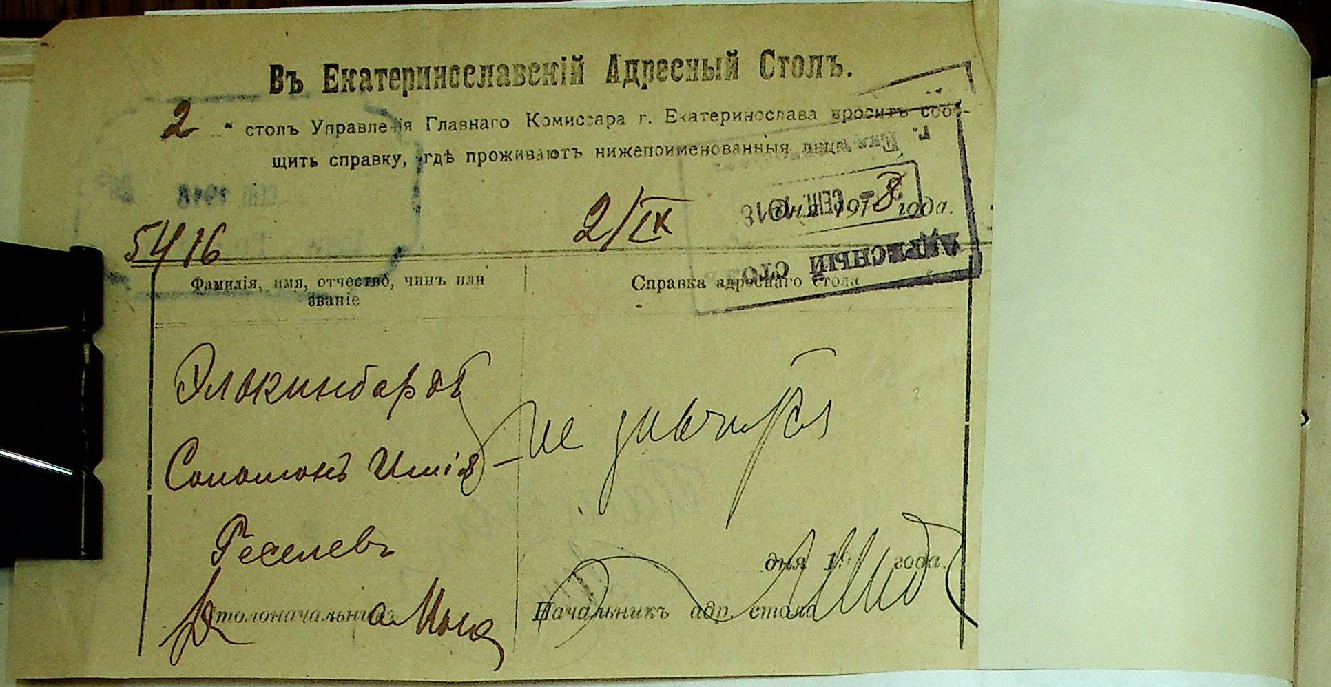 Въ Екатеринославскій Адресный Столъ.
2 столъ Управленія Главнаго Комиссара г. Екатеринослава проситъ сооб-
щить справку, гдѣ проживаютъ нижепоименованныя лица
2/IX дня 1918 года.
5416
СЕН. 1918
АДРЕСНЫЙ СТОЛ
Фамилія, имя, отчество, чинъ или званіе
Справка адреснаго стола
Соломонъ
Геселевъ
не значится
дня 19 года.
Столоначальникъ
Начальникъ адр стола